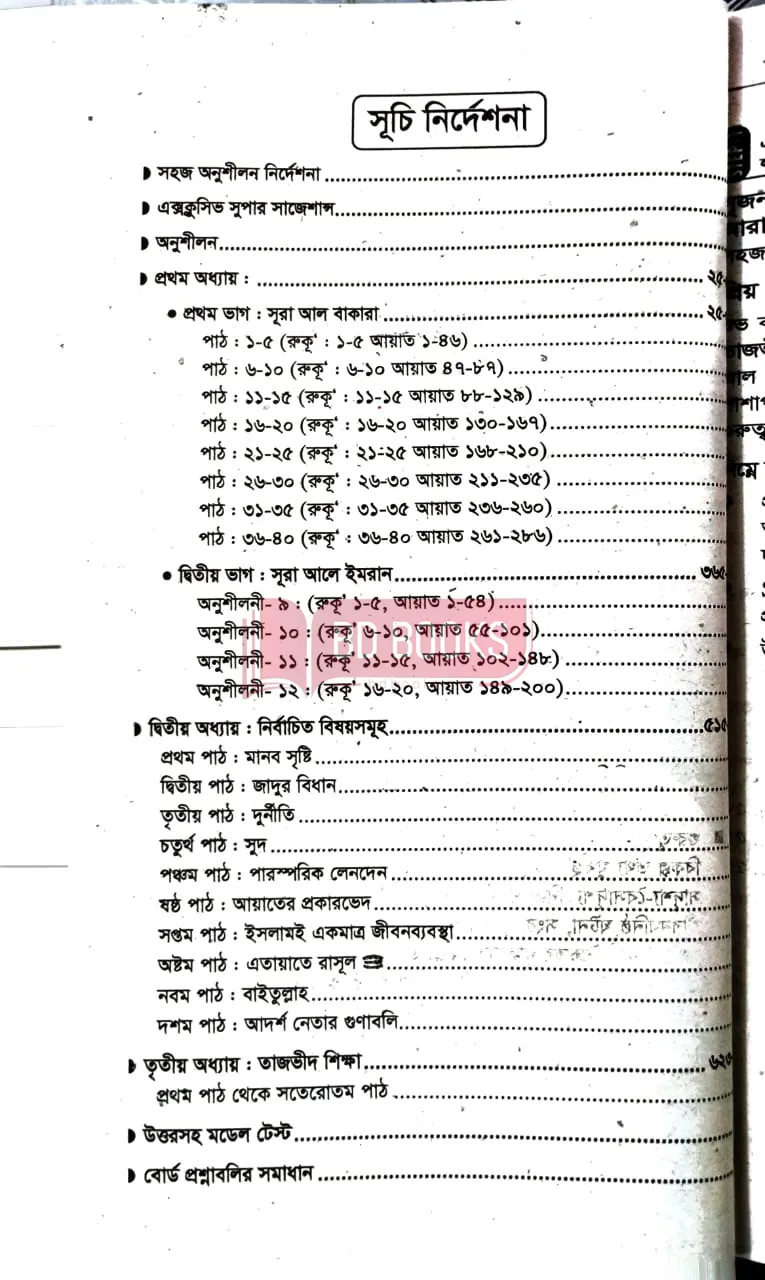 সূচি নির্দেশনা
সহজ অনুশীলন নির্দেশনা
এক্সক্লুসিভ সুপার সাজেশান্স
অনুশীলন
প্রথম অধ্যায় : ২৫
প্রথম ভাগ : সূরা আল বাকারা ২৫
পাঠ : ১-৫ (রুকূ' : ১-৫ আয়াত ১-৪৬)
পাঠ : ৬-১০ (রুকূ' : ৬-১০ আয়াত ৪৭-৮৭)
পাঠ : ১১-১৫ (রুকূ' : ১১-১৫ আয়াত ৮৮-১২৯)
পাঠ : ১৬-২০ (রুকূ' : ১৬-২০ আয়াত ১৩০-১৬৭)
পাঠ : ২১-২৫ (রুকূ' : ২১-২৫ আয়াত ১৬৮-২১০)
পাঠ : ২৬-৩০ (রুকূ' : ২৬-৩০ আয়াত ২১১-২৩৫)
পাঠ : ৩১-৩৫ (রুকূ' : ৩১-৩৫ আয়াত ২৩৬-২৬০)
পাঠ : ৩৬-৪০ (রুকূ' : ৩৬-৪০ আয়াত ২৬১-২৮৬)
দ্বিতীয় ভাগ : সূরা আলে ইমরান ৩৬৫
অনুশীলনী- ৯ : (রুকূ' ১-৫, আয়াত ১-৫৪)
অনুশীলনী- ১০ : (রুকূ' ৬-১০, আয়াত ৫৫-১০১)
BD BOOKS
অনুশীলনী- ১১ : (রুকূ' ১১-১৫, আয়াত ১০২-১৪৮)
অনুশীলনী- ১২ : (রুকূ' ১৬-২০, আয়াত ১৪৯-২০০)
দ্বিতীয় অধ্যায় : নির্বাচিত বিষয়সমূহ ৫১৫
প্রথম পাঠ : মানব সৃষ্টি
দ্বিতীয় পাঠ : জাদুর বিধান
তৃতীয় পাঠ : দুর্নীতি
চতুর্থ পাঠ : সুদ
পঞ্চম পাঠ : পারস্পরিক লেনদেন
ষষ্ঠ পাঠ : আয়াতের প্রকারভেদ
সপ্তম পাঠ : ইসলামই একমাত্র জীবনব্যবস্থা
অষ্টম পাঠ : এতায়াতে রাসূল
নবম পাঠ : বাইতুল্লাহ
দশম পাঠ : আদর্শ নেতার গুণাবলি
তৃতীয় অধ্যায় : তাজভীদ শিক্ষা
প্রথম পাঠ থেকে সতেরোতম পাঠ
উত্তরসহ মডেল টেস্ট
বোর্ড প্রশ্নাবলির সমাধান